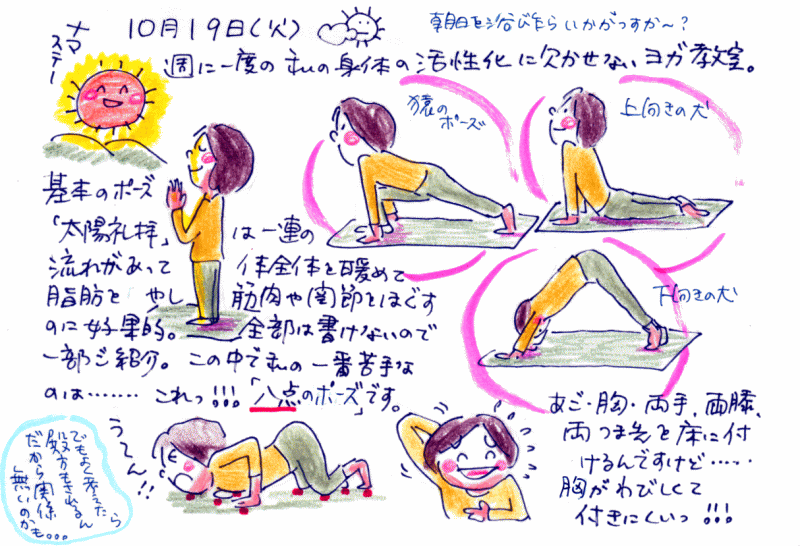 ナマステー
10月19日(火)
朝日を浴び乍らいかがっすか〜?
週に一度の私の身体の活性化に欠かせないヨガ教室。
猿のポーズ
上向きの犬
下向きの犬
基本のポーズ
「太陽礼拝」は一連の
流れがあって体全体を暖めて
脂肪を燃やし筋肉や関節をほぐす
のに好果的。全部は書けないので
一部ご紹介。この中で私の一番苦手な
のは……これっ!!!「八点のポーズ」です。
うーん!!
でもよく考えたら
殿方もされるん
だから関係
無いのかも。。。
あご・胸・両手、両膝、
両つま先を床に付
けるんですけど……
胸がわびしくて
付きにくいっ!!!